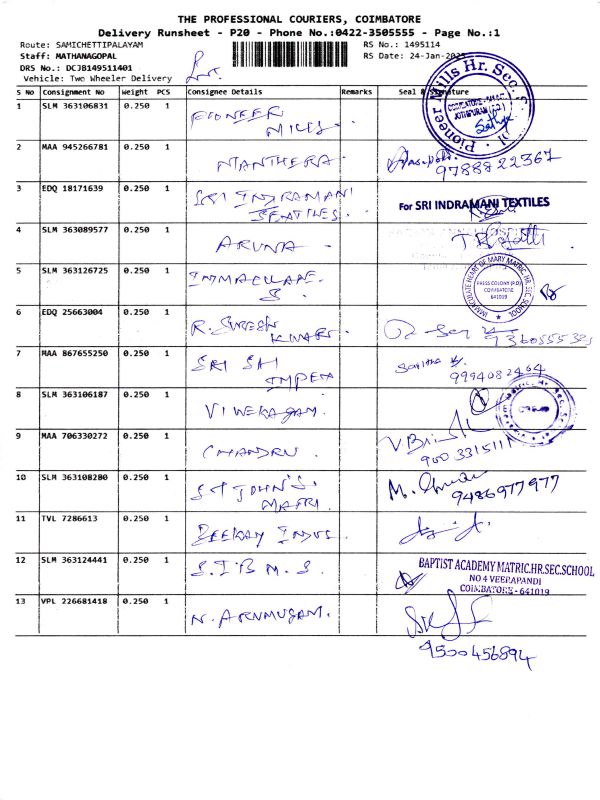 THE PROFESSIONAL COURIERS, COIMBATORE
Delivery Runsheet - P20 - Phone No.:0422-3505555 - Page No.:1
Route: SAMICHETTIPALAYAM
RS No.: 1495114
Staff: MATHANAGOPAL
RS Date: 24-Jan-202
DRS No.: DCJB149511401
Vehicle: Two Wheeler Delivery
S No Consignment No Weight PCS Consignee Details Remarks Seal & Signature
1 SLM 363106831 0.250 1 PIONEER
MILLS.
Pioneer Mills Hr. Sec.
2 MAA 945266781 0.250 1 MANTHERA.
9788822367
3 EDQ 18171639 0.250 1 SRI INDRAMANI
For SRI INDRAMANI TEXTILES
4 SLM 363089577 0.250 1 ARUNA
5 SLM 363126725 0.250 1
S.
IMMACULATE HEART OF MARY MATRIC. HR. SEC. SCHOOL
PRESS COLONY (P.O)
COIMBATORE
641019
6 EDQ 25663004 0.250 1 R. SURESH
KUMAR
7 MAA 867655250 0.250 1 SRI SAI
IMPEX
9994082464
8 SLM 363106187 0.250 1 VIVEKAGAM.
9 MAA 706330272 0.250 1 CHANDRU.
10 SLM 363108280 0.250 1 ST JOHN'S.
MATRI.
9486977977
11 TVL 7286613 0.250 1 BEEKAY INDUS
12 SLM 363124441 0.250 1 S.I.B.M.S.
BAPTIST ACADEMY MATRIC.HR.SEC.SCHOOL
NO 4 VEERAPANDI
COIMBATORE - 641019
13 VPL 226681418 0.250 1 N. ARUMUGAM.
9500456894